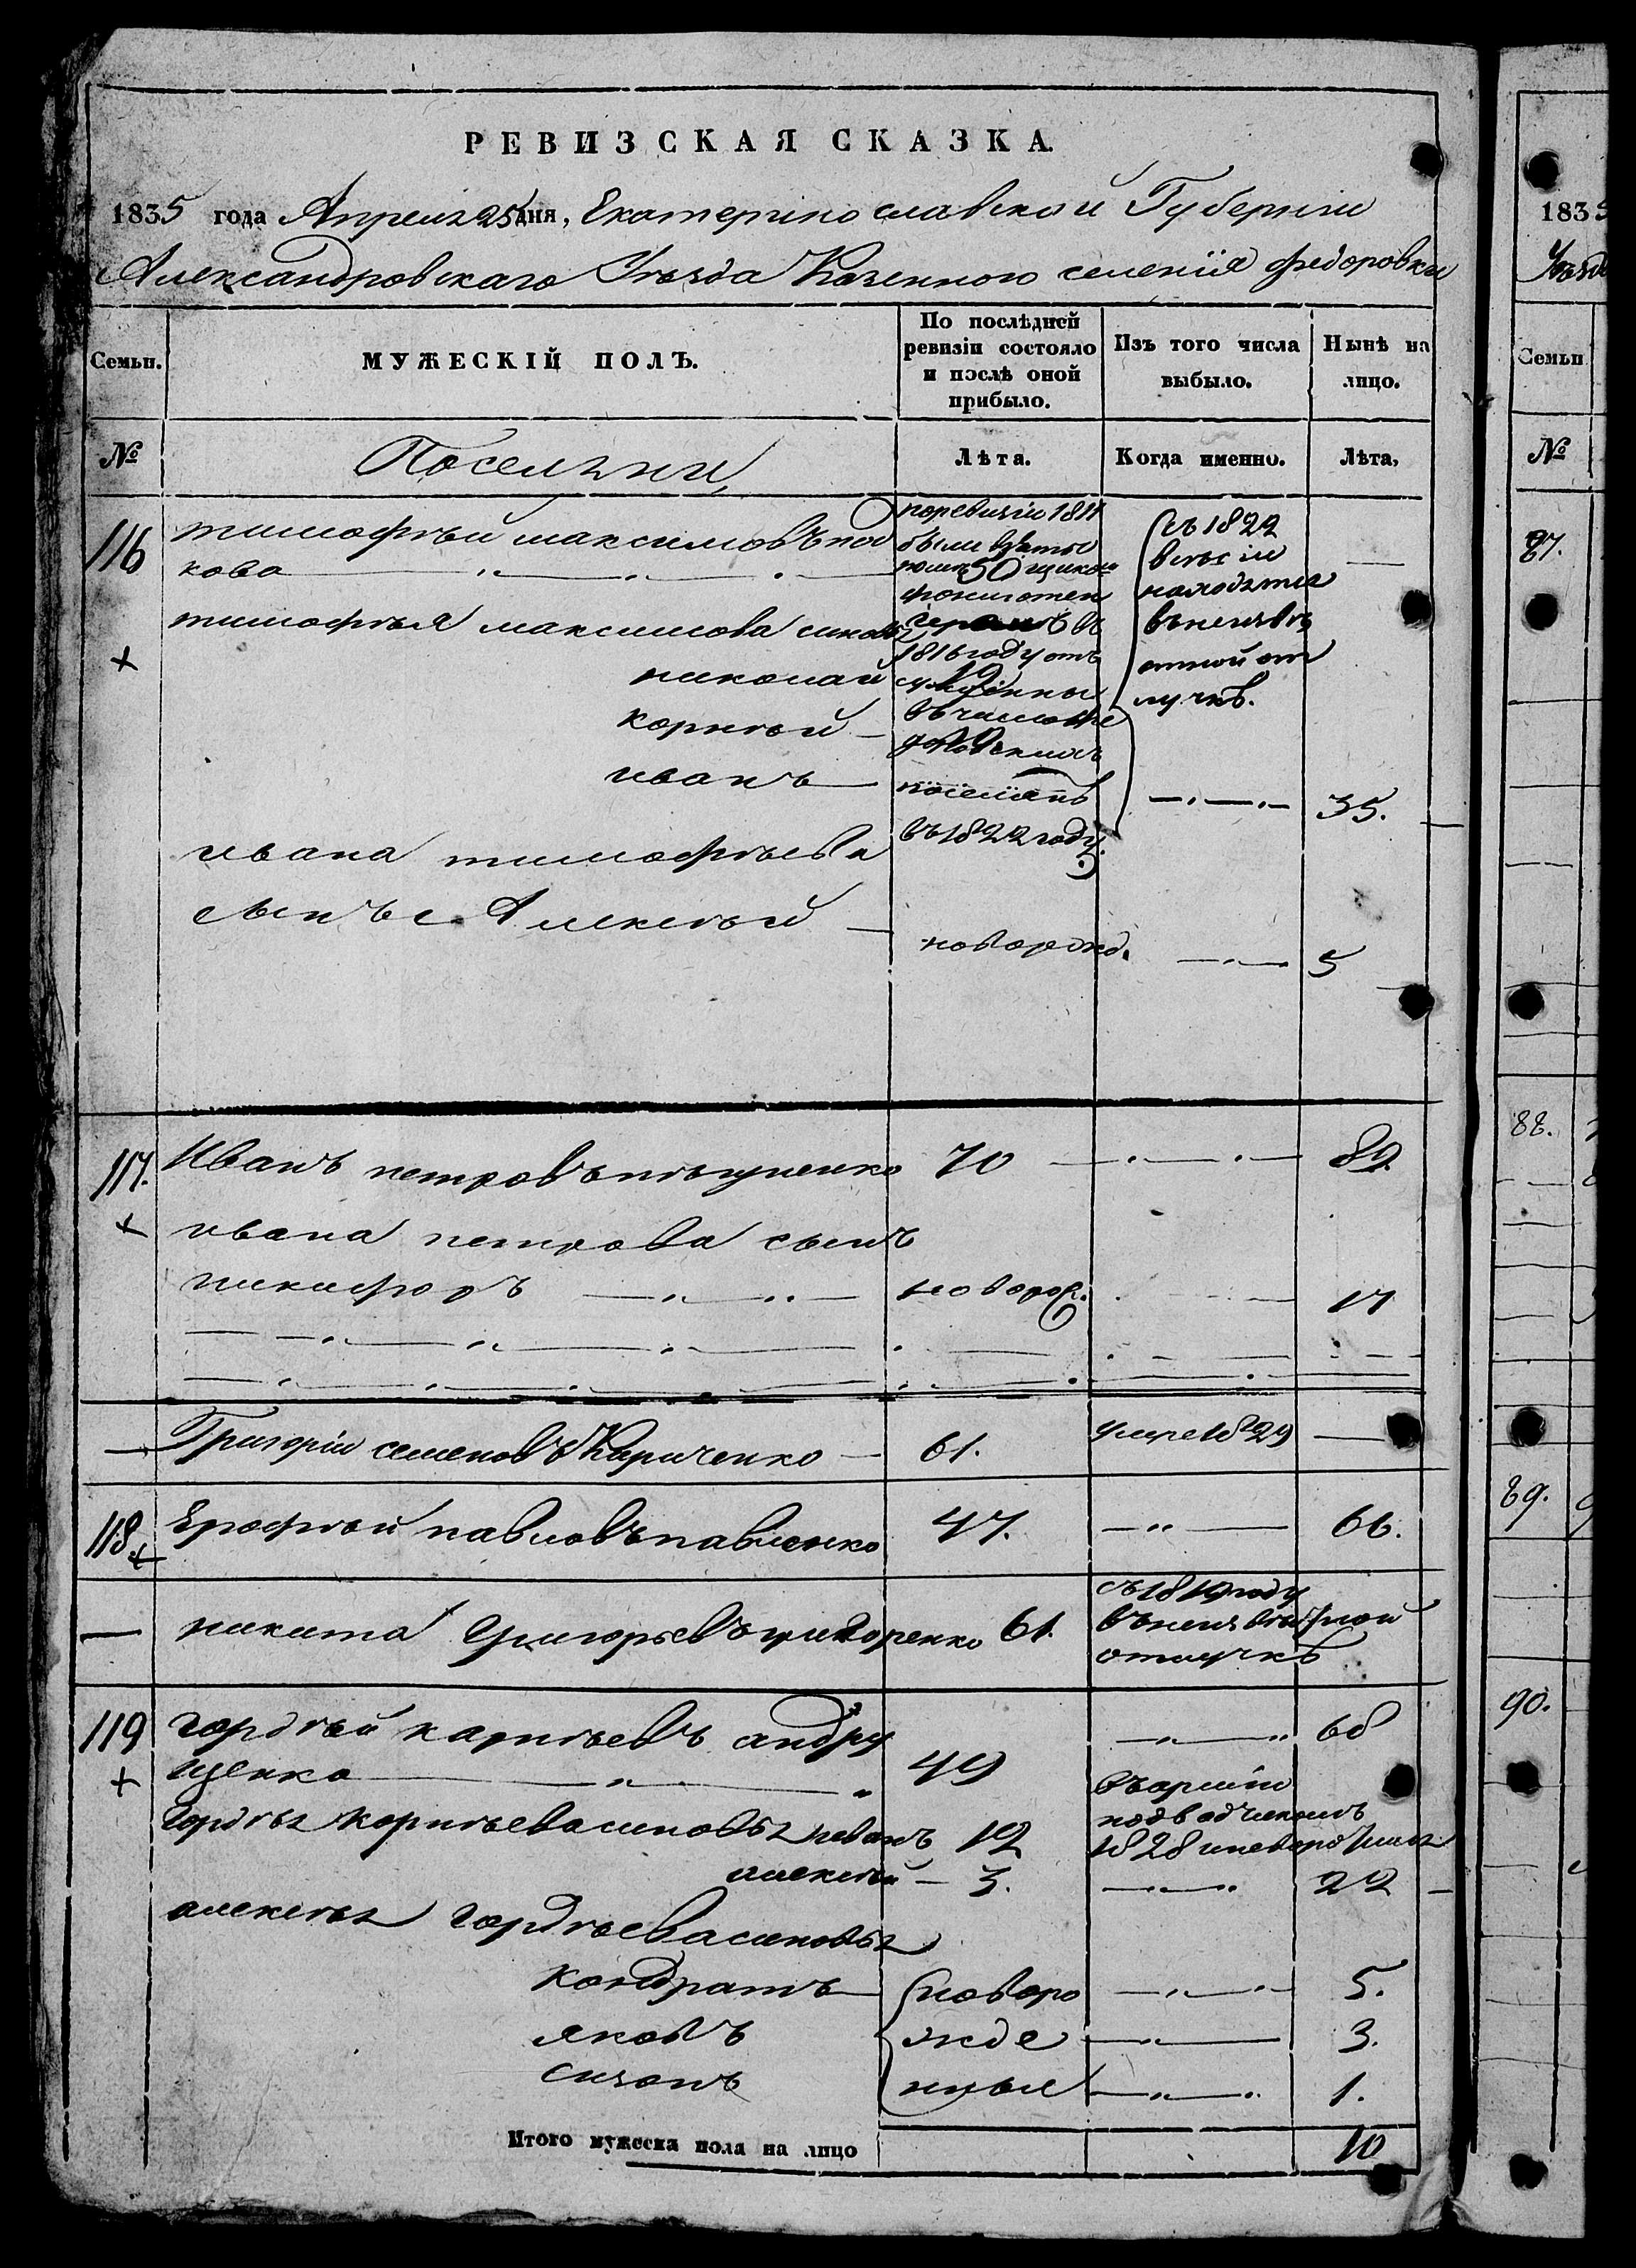 РЕВИЗСКАЯ СКАЗКА.
1835 года Апреля 25 дня, Екатеринославской Губернии
Александровскаго Уезда Казенного селенія федоровки
Семьи.
МУЖЕСКІЙ ПОЛЪ.
По послѣдней ревизіи состояло и послѣ оной прибыло.
Изъ того числа выбыло.
Нынѣ на лицо.
№
Поселяни
Лѣта.
Когда именно.
Лѣта,
116
тимофѣй максимовъ
кова
поревизіи 1811
были взяты
50
1816 году отъ
въ числе
поселянъ
въ 1822 году.
съ 1822
находятся
внеизвѣ
стной от
лучкѣ.
тимофѣя максимова сыновья
николай
корнѣй
иванъ
35.
ивана тимофѣева
сынъ Алексѣй
новорожд.
5
117.
Иванъ петровъ
70
89
ивана петрова сынъ
никифоръ
новорож.
17
Григорій семеновъ Кириченко
61.
умре 1829
118.
Ерофѣй павловъ павленко
47.
66.
никита Григорьевъ
61.
съ 1819 году
внеизвѣстной
отлучкѣ
119
гордѣй карнѣевъ андру
щенко
49
68
гордѣя корнѣева сыновья иванъ
12
въ армии
подводчикомъ
1828
алексѣй
3.
22
алексѣя гордѣева сыновья
кондратъ
новоро
5.
яковъ
жде
3.
сизонъ
нные
1.
Итого мужеска пола на лицо
10
1835
Уезда
Семьи
№
87.
88.
89.
90.